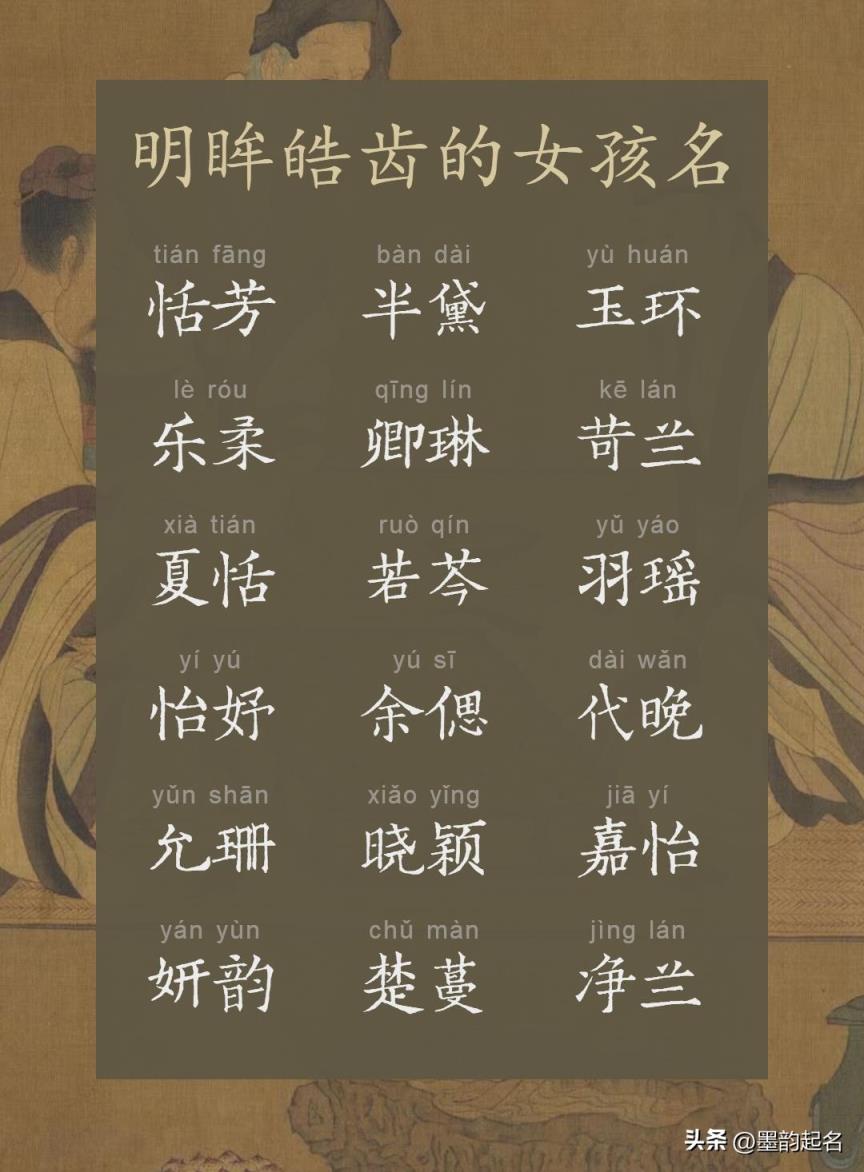 明眸皓齿的女孩名
tián fāng bàn dài yù huán
恬芳 半黛 玉环
lè róu qīng lín kē lán
乐柔 卿琳 苛兰
xià tián ruò qín yǔ yáo
夏恬 若芩 羽瑶
yí yú yú sī dài wǎn
怡妤 余偲 代晚
yǔn shān xiǎo yǐng jiā yí
允珊 晓颖 嘉怡
yán yùn chǔ màn jìng lán
妍韵 楚蔓 净兰
头条 @墨韵起名